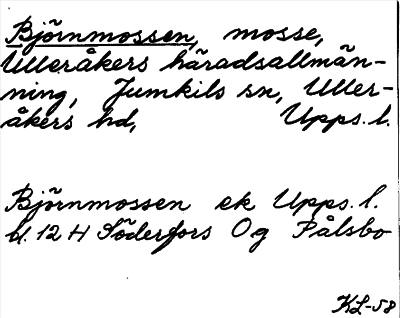 Björnmossen, mosse,
Ulleråkers häradsallmän-
ning, Jumkils sn, Uller-
åkers hd, Upps. l.
Björnmossen ek Upps. l.
bl. 12 H Söderfors Og Pålsbo
KL-58